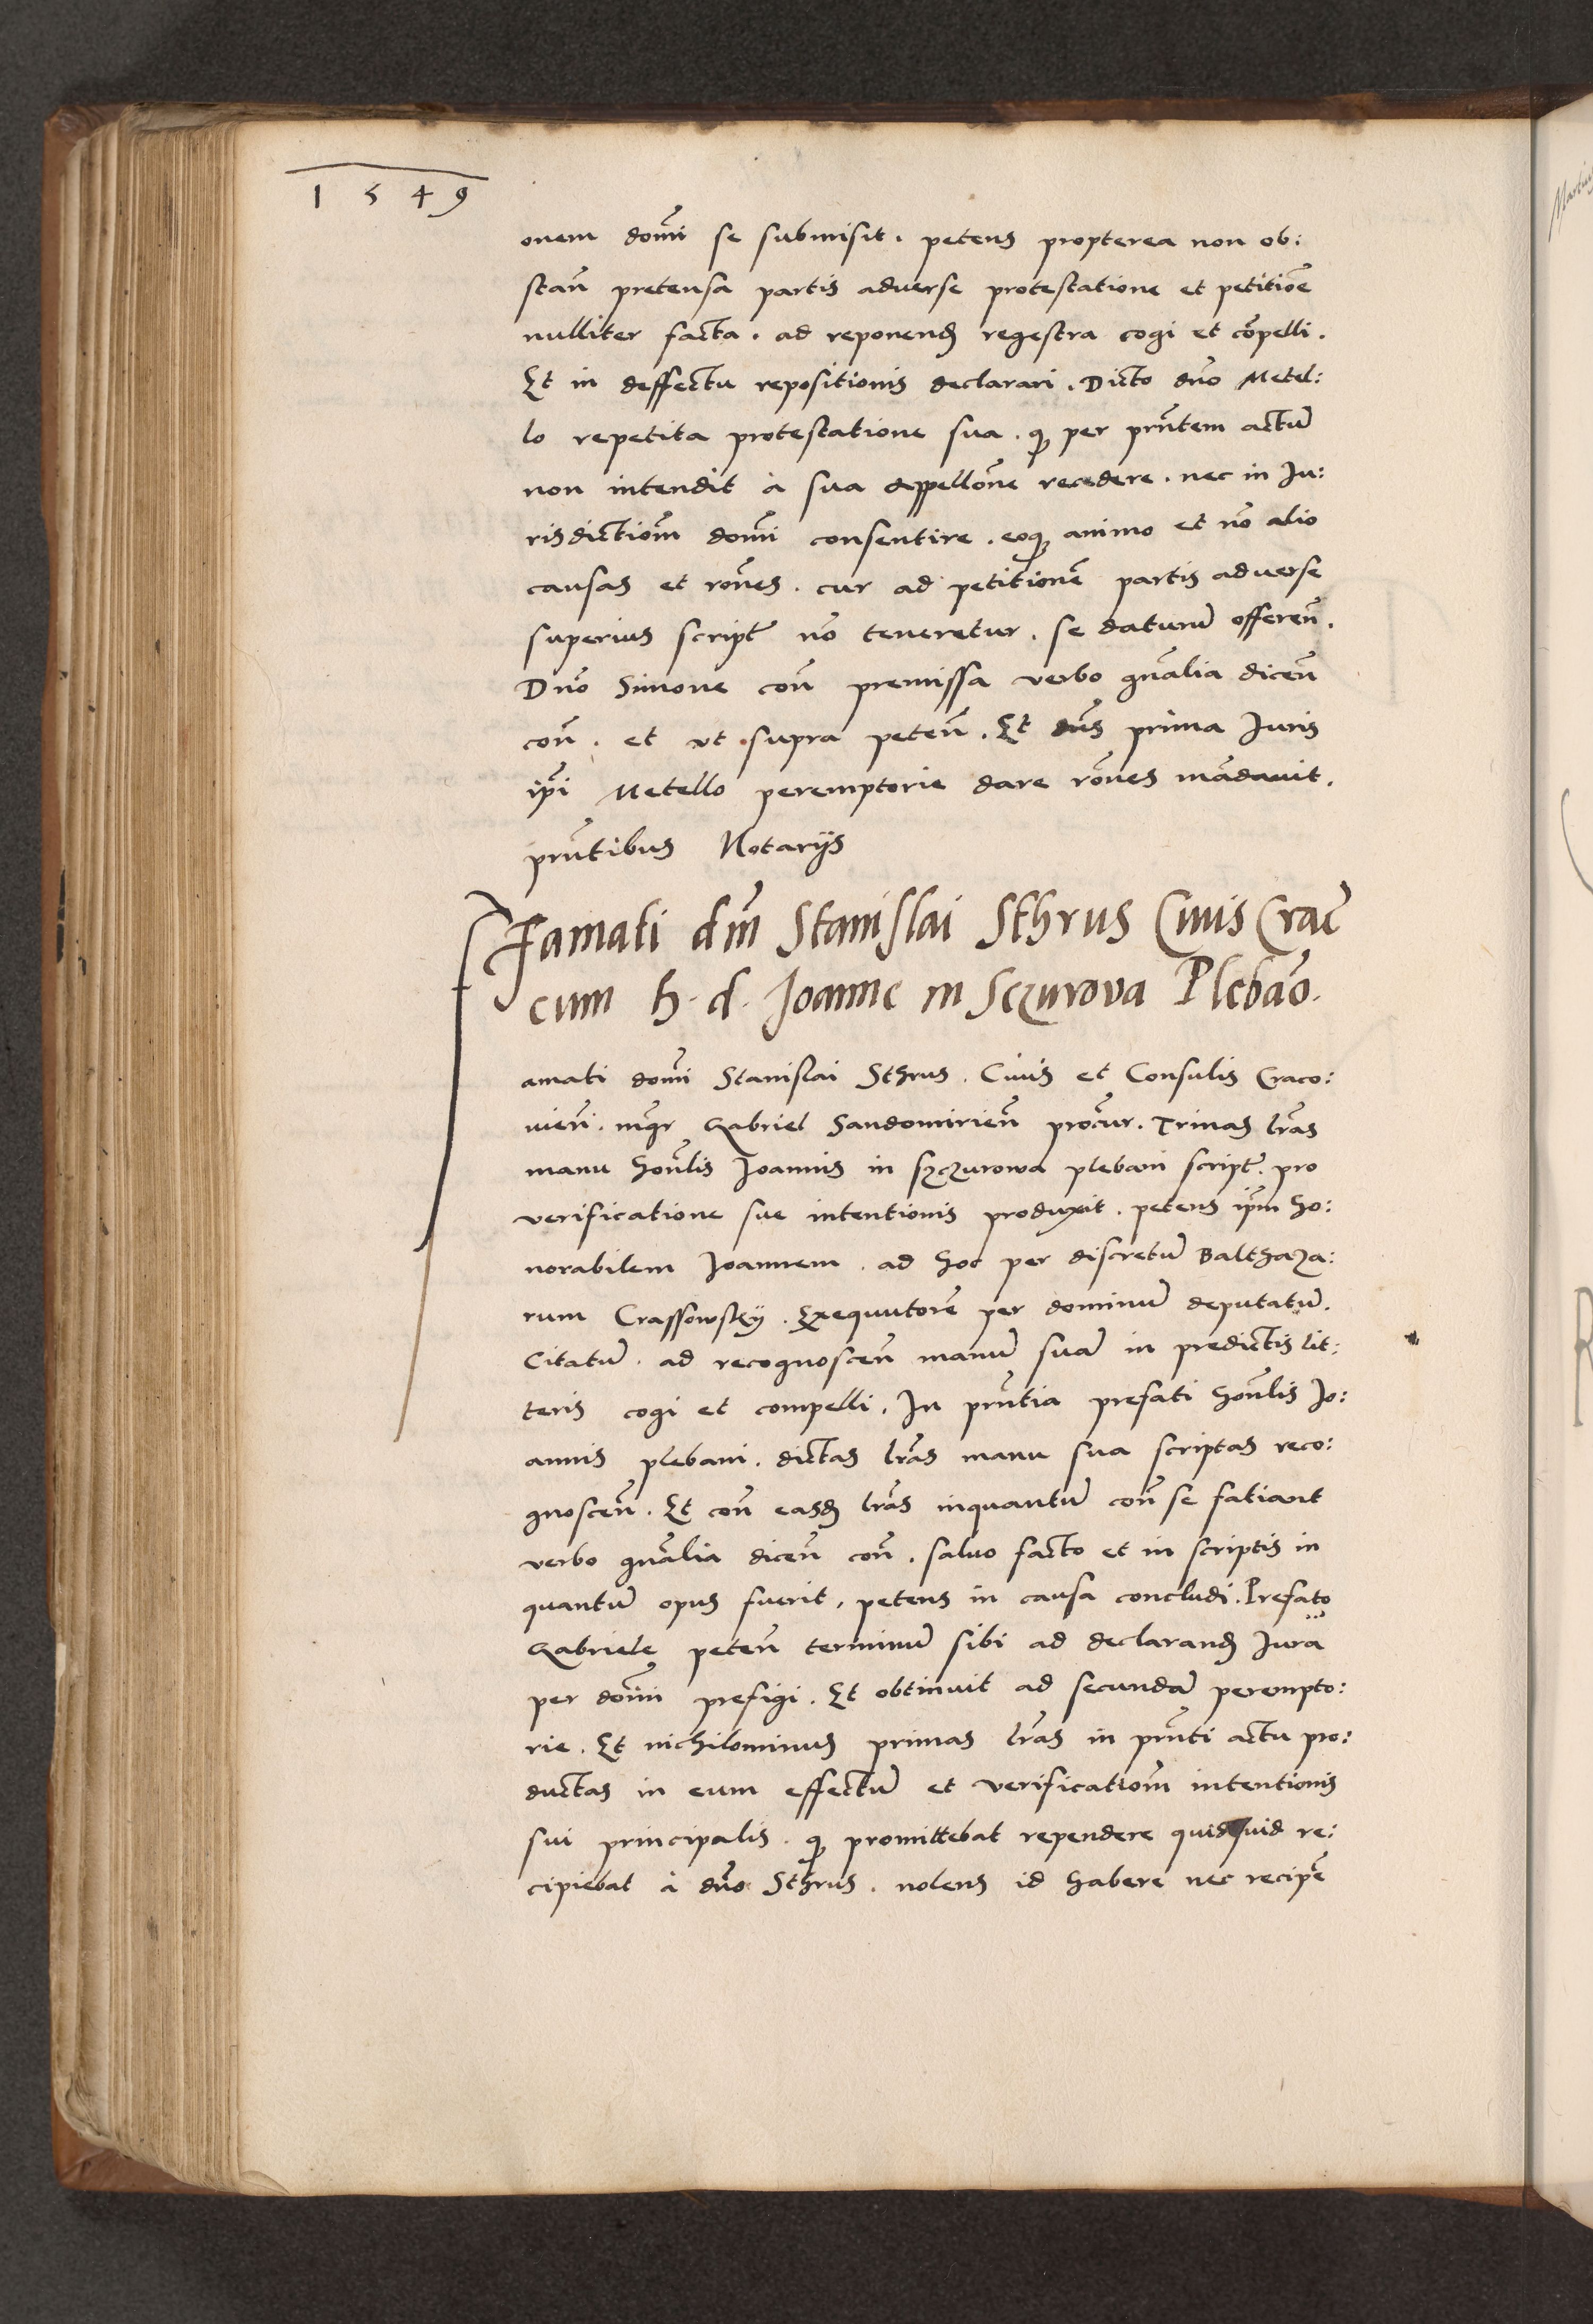 1549
onem domĩ se submisit. petens propterea non ob:
stañ pretensa partis adverse protestatione et petitiõe
nulliter facta. ad reponend regestra cogi et cõpelli.
Et in deffectu repositionis declarari. Dicto dño Metel:
lo repetita protestatione sua. q per prñtem actũ
non intendit à sua appellõne recedere. nec in Ju:
risdictiom̃ domĩ consentire. eoq animo et nõ alio
causas et rões. cur ad petitionẽ partis adverse
superius script̃ nõ teneretur. se daturũ offereñ.
Dño Simone coñ premissa verbo gñalia diceñ
coñ. et ut supra peteñ. Et dñs prima Juris
ip̃i Metello peremptorie dare rõnes mãdavit.
prñtibus Notarijs
Famati dm̃ Stanislai Sthrus Civis Crac̃
cum h. d. Joanne in Sczurova Plebão.
amati domĩ Stanislai Sthrus. Civis et Consulis Craco:
vieñ. mgr̃ Gabriel Sandomirieñ procur̃. Trinas lr̃as
manu hoñlis Joannis in Szczurowa plebani script̃. pro
verificatione sue intentionis produxit. petens ip̃m ho:
norabilem Joannem. ad hoc per discretũ Balthaza:
rum Crassowsky. Exequutorẽ per dominũ deputatũ.
Citatũ. ad recognosceñ manũ suã in predictis lit:
teris cogi et compelli. In prñtia prefati hoñlis Jo:
annis plebani. dictas lr̃as manu sua scriptas reco:
gnosceñ. Et coñ easd lr̃as inquantũ coñ se fatiant
verbo gñalia diceñ coñ. salvo facto et in scriptis in
quantũ opus fuerit, petens in causa concludi. Prefato
Gabriele peteñ terminũ sibi ad declarand Jura
per domĩ prefigi. Et obtinuit ad secundã perempto:
rie. Et nichilominus primas lr̃as in prñti actu pro:
ductas in eum effectũ et verificatiom̃ intentionis
sui principalis. q promittebat rependere quidquid re:
cipiebat à dño Sthrus. nolens id habere nec recipẽ